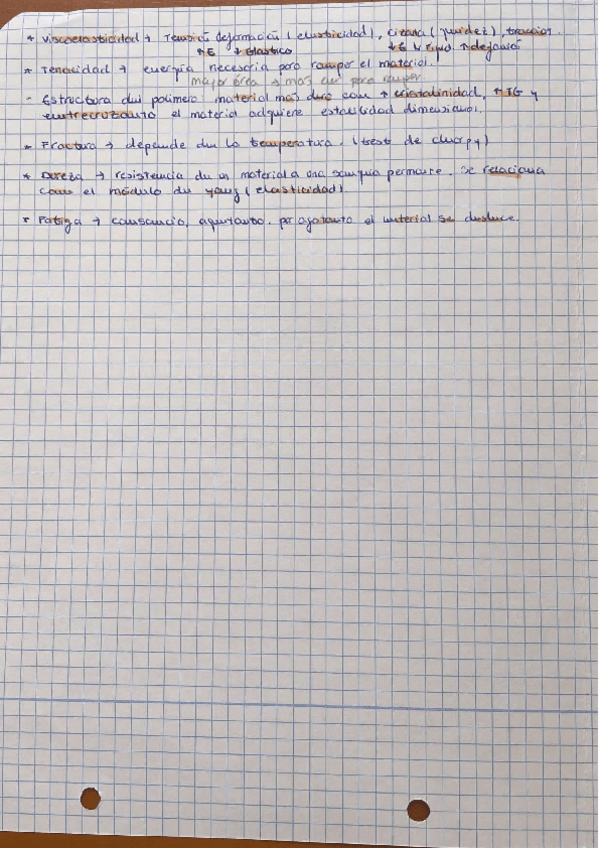 * Viscoelasticidad → Tensión deformación (elasticidad), cizalla (fluidez), tracción.
↑E ↓elástico ↓E
* Tenacidad → energía necesaria para romper el material.
mayor área → más para romper.
- Estructura del polímero material más duro con ↑ cristalinidad, ↑TG y
entrecruzamiento el material adquiere estabilidad dimensional.
* Fractura → depende de la temperatura. (test de charpy)
* Dureza → resistencia de un material a una permanente. Se relaciona
con el módulo de young (elasticidad)
* Fatiga → cansancio, agotamiento. por agotamiento el material se